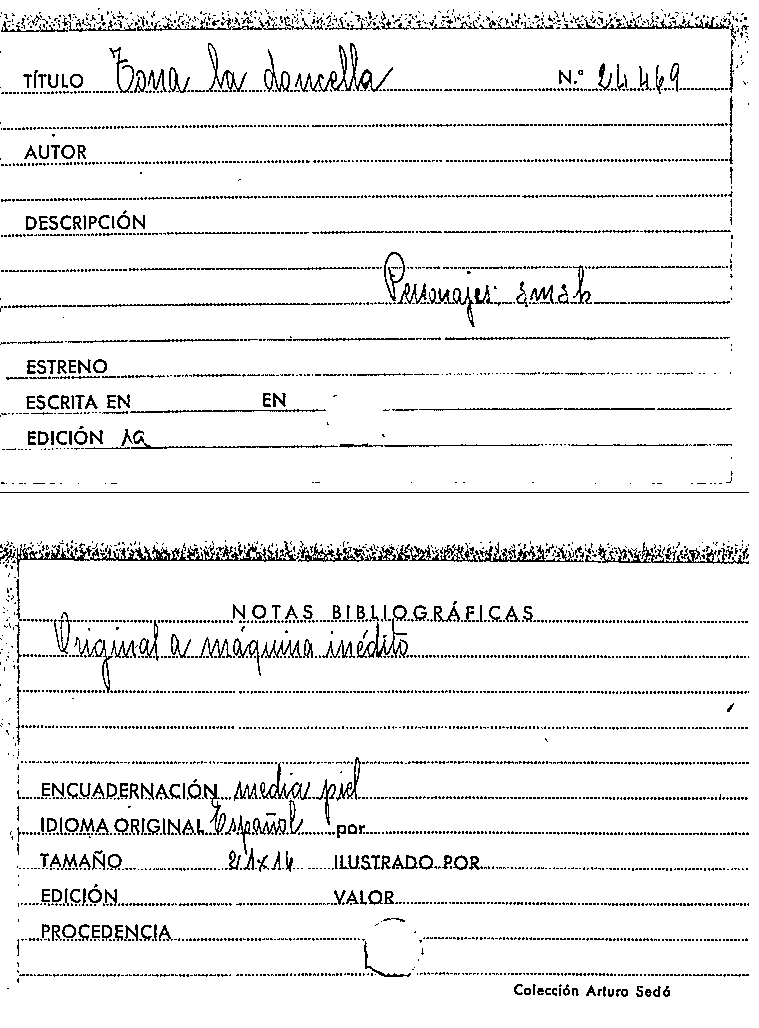 TÍTULO Tona la doncella N.º 24469
AUTOR
DESCRIPCIÓN
Personajes:
ESTRENO
ESCRITA EN EN
EDICIÓN 1a
NOTAS BIBLIOGRÁFICAS
Original a máquina inédito
ENCUADERNACIÓN media piel
IDIOMA ORIGINAL Español por
TAMAÑO 21x14 ILUSTRADO POR
EDICIÓN VALOR
PROCEDENCIA
Colección Arturo Sedó